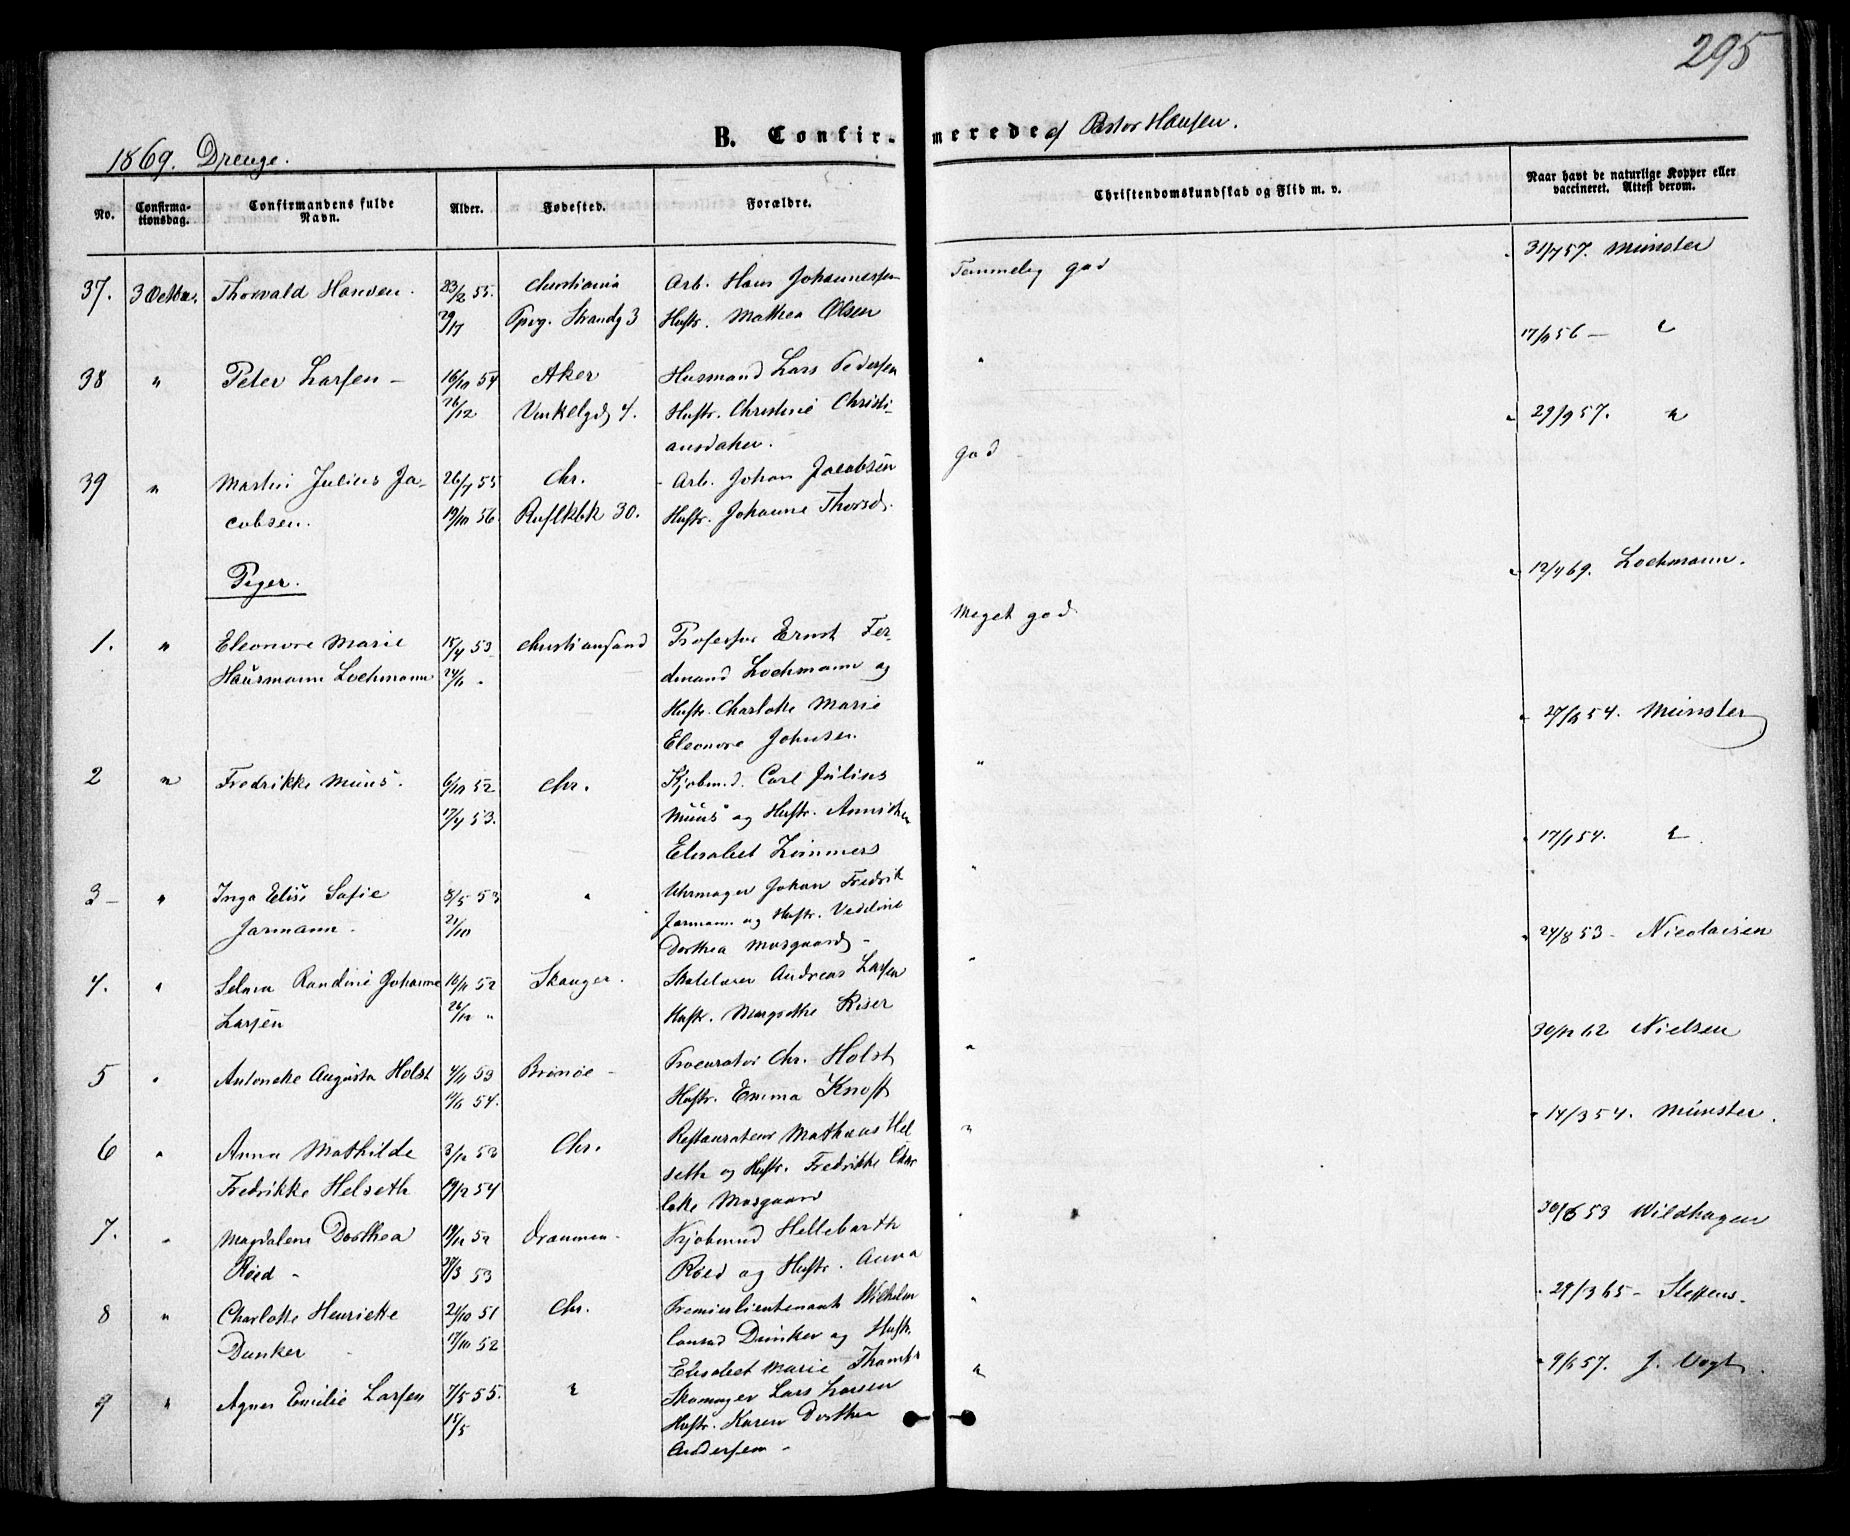 295
B. Confir-merede af Pastor Hansen.
1869. Drenge.
No.
Confirma-
tionsdag.
Confirmandens fulde
Navn.
Alder.
Fødested.
Forældre.
Christendomskundskab og Flid m. v.
Naar havt de naturlige Kopper eller
vaccineret. Attest derom.
37. 3 Octbr. Thorvald Hansen. 23/2 55. Christiania Arb. Hans Johannesen Temmelig god 31/7 57. Münster
29/4 Strandg 3 Hustr. Mathea Olsen
38 " Peter Larsen - 16/10 54 Aker Husmand Lars Pedersen " 17/9 56 — "
26/12 Vinkelgd 4. Hustr. Christine Christi-
ansdatter.
39 " Martin Julius Ja- 26/7 55 Chr. Arb. Johan Jacobsen god 29/9 57. "
cobsen. 19/10 56. Ruslkbk 30. Hustr. Johanne Thorsd.
Piger.
1. " Eleonore Marie 15/4 53 Christiansand Professor Ernst Fer- Meget god 12/4 69. Lochmann.
Hausmann Lochmann 24/6 " dinand Lochmann og
Hustr. Charlotte Marie
Eleonore Johnsen
2 " Fredrikke Müüs. 6/10 52 Chr. Kjøbmd. Carl Julius " 27/6 54. Münster
17/4 53. Müüs og Hustr. Annichen
Elisabet Zimmers
3 - " Inga Elise Sofie 8/5 53 " Uhrmager Johan Fredrik " 17/1 54. "
Jarmann. 21/10 Jarmann og Hustr. Vedeline
Dorthea Mosgaard -
4. " Selma Randine Johanne 10/11 52 Skauger. Skolelærer Andreas Larsen " 24/8 53 - Nicolaisen
Larsen 26/12 " Hustr. Margrethe Riser
5 " Antonette Augusta Holst 4/11 53 Brønøe - Procurator Chr. Holst " 30/12 62 Nielsen
11/6 54. Hustr. Emma Knoff
6 " Anna Mathilde 3/12 53 Chr. Restaurateur Mathæus Hel " 14/3 54. Münster.
Fredrikke Helseth 19/2 54 seth og Hustr. Fredrikke Char
lotte Mosgaard
7. " Magdalene Dorthea 19/12 52 Drammen - Kjøbmnd Hellebarth " 30/6 53 Wildhagen
Røed - 27/3 53 Røed og Hustr. Anna
8 " Charlotte Henriette 21/10 51 Chr. Premierlieutenant Wilhelm " 29/3 65 - Steffens.
Dunker 17/10 52 Conrad Dunker og Hustr.
Elisabet Marie
9 " Agnes Emilie Larsen 7/5 55. " Skomager Lars Larsen " 9/6 57. J. Vogt.
15/5 Hustr. Karen Dorthea
Andersen -